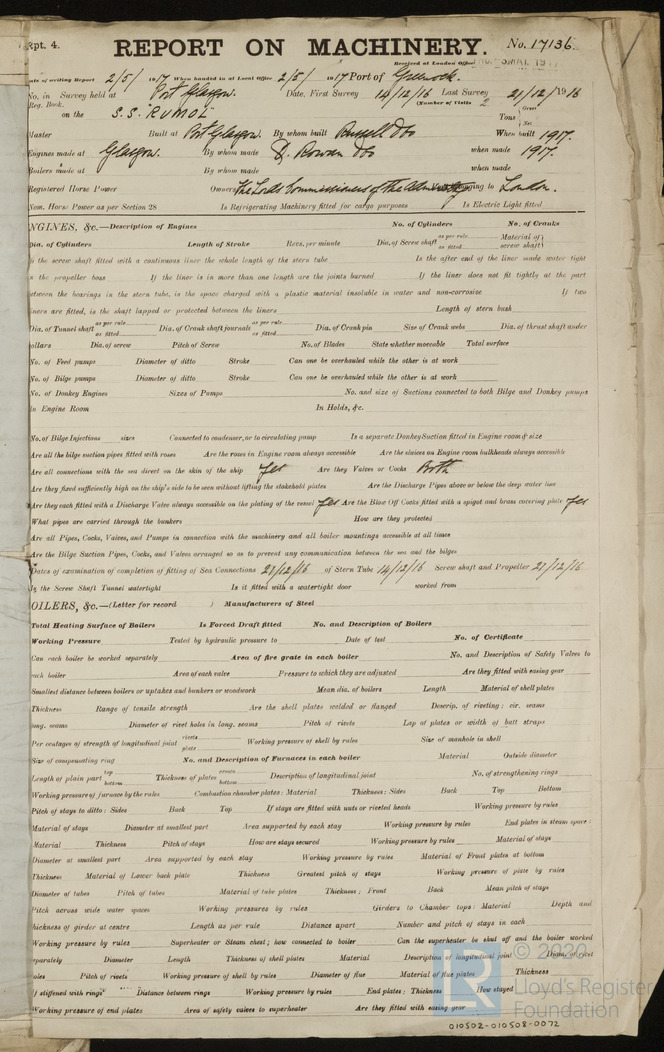 Rpt. 4.
REPORT ON MACHINERY.
No. 17136
Received at London Office
Date of writing Report 2/5/ 1917 When handed in at Local Office 2/5/ 1917 Port of Greenock.
No. in Survey held at Port Glasgow. Date, First Survey 14/12/16 Last Survey 21/12/1916
Reg. Book. (Number of Visits 2
on the S.S. "RUMOL" Tons { Gross Net
Master Built at Port Glasgow. By whom built Russell & Co When built 1917.
Engines made at Glasgow. By whom made D. Rowan & Co when made 1917.
Boilers made at By whom made when made
Registered Horse Power Owners The Lords Commissioners of The Admiralty belonging to London.
Nom. Horse Power as per Section 28 Is Refrigerating Machinery fitted for cargo purposes Is Electric Light fitted
NGINES, &c.—Description of Engines No. of Cylinders No. of Cranks
Dia. of Cylinders Length of Stroke Revs. per minute Dia. of Screw shaft as per rule as fitted Material of screw shaft
Is the screw shaft fitted with a continuous liner the whole length of the stern tube Is the after end of the liner made water tight
in the propeller boss If the liner is in more than one length are the joints burned If the liner does not fit tightly at the part
between the bearings in the stern tube, is the space charged with a plastic material insoluble in water and non-corrosive If two
liners are fitted, is the shaft lapped or protected between the liners Length of stern bush
Dia. of Tunnel shaft as per rule as fitted Dia. of Crank shaft journals as per rule as fitted Dia. of Crank pin Size of Crank webs Dia. of thrust shaft under
collars Dia. of screw Pitch of Screw No. of Blades State whether moveable Total surface
No. of Feed pumps Diameter of ditto Stroke Can one be overhauled while the other is at work
No. of Bilge pumps Diameter of ditto Stroke Can one be overhauled while the other is at work
No. of Donkey Engines Sizes of Pumps No. and size of Suctions connected to both Bilge and Donkey pumps
In Engine Room In Holds, &c.
No. of Bilge Injections sizes Connected to condenser, or to circulating pump Is a separate Donkey Suction fitted in Engine room & size
Are all the bilge suction pipes fitted with roses Are the roses in Engine room always accessible Are the sluices on Engine room bulkheads always accessible
Are all connections with the sea direct on the skin of the ship Yes Are they Valves or Cocks Both
Are they fixed sufficiently high on the ship's side to be seen without lifting the stokehold plates Are the Discharge Pipes above or below the deep water line
Are they each fitted with a Discharge Valve always accessible on the plating of the vessel Yes Are the Blow Off Cocks fitted with a spigot and brass covering plate Yes
What pipes are carried through the bunkers How are they protected
Are all Pipes, Cocks, Valves, and Pumps in connection with the machinery and all boiler mountings accessible at all times
Are the Bilge Suction Pipes, Cocks, and Valves arranged so as to prevent any communication between the sea and the bilges
Dates of examination of completion of fitting of Sea Connections 21/12/16 of Stern Tube 14/12/16 Screw shaft and Propeller 21/12/16
Is the Screw Shaft Tunnel watertight Is it fitted with a watertight door worked from
OILERS, &c.—(Letter for record ) Manufacturers of Steel
Total Heating Surface of Boilers Is Forced Draft fitted No. and Description of Boilers
Working Pressure Tested by hydraulic pressure to Date of test No. of Certificate
Can each boiler be worked separately Area of fire grate in each boiler No. and Description of Safety Valves to
each boiler Area of each valve Pressure to which they are adjusted Are they fitted with easing gear
Smallest distance between boilers or uptakes and bunkers or woodwork Mean dia. of boilers Length Material of shell plates
Thickness Range of tensile strength Are the shell plates welded or flanged Descrip. of riveting: cir. seams
long. seams Diameter of rivet holes in long. seams Pitch of rivets Lap of plates or width of butt straps
Per centages of strength of longitudinal joint rivets plate Working pressure of shell by rules Size of manhole in shell
Size of compensating ring No. and Description of Furnaces in each boiler Material Outside diameter
Length of plain part top bottom Thickness of plates crown bottom Description of longitudinal joint No. of strengthening rings
Working pressure of furnace by the rules Combustion chamber plates: Material Thickness: Sides Back Top Bottom
Pitch of stays to ditto: Sides Back Top If stays are fitted with nuts or riveted heads Working pressure by rules
Material of stays Diameter at smallest part Area supported by each stay Working pressure by rules End plates in steam space:
Material Thickness Pitch of stays How are stays secured Working pressure by rules Material of stays
Diameter at smallest part Area supported by each stay Working pressure by rules Material of Front plates at bottom
Thickness Material of Lower back plate Thickness Greatest pitch of stays Working pressure of plate by rules
Diameter of tubes Pitch of tubes Material of tube plates Thickness: Front Back Mean pitch of stays
Pitch across wide water spaces Working pressures by rules Girders to Chamber tops: Material Depth and
thickness of girder at centre Length as per rule Distance apart Number and pitch of stays in each
Working pressure by rules Superheater or Steam chest; how connected to boiler Can the superheater be shut off and the boiler worked
separately Diameter Length Thickness of shell plates Material Description of longitudinal joint Diam. of rivet
holes Pitch of rivets Working pressure of shell by rules Diameter of flue Material of flue plates Thickness
If stiffened with rings Distance between rings Working pressure by rules End plates: Thickness How stayed
Working pressure of end plates Area of safety valves to superheater Are they fitted with easing gear
© 2020
Lloyd's Register
Foundation
010502-010508-0072